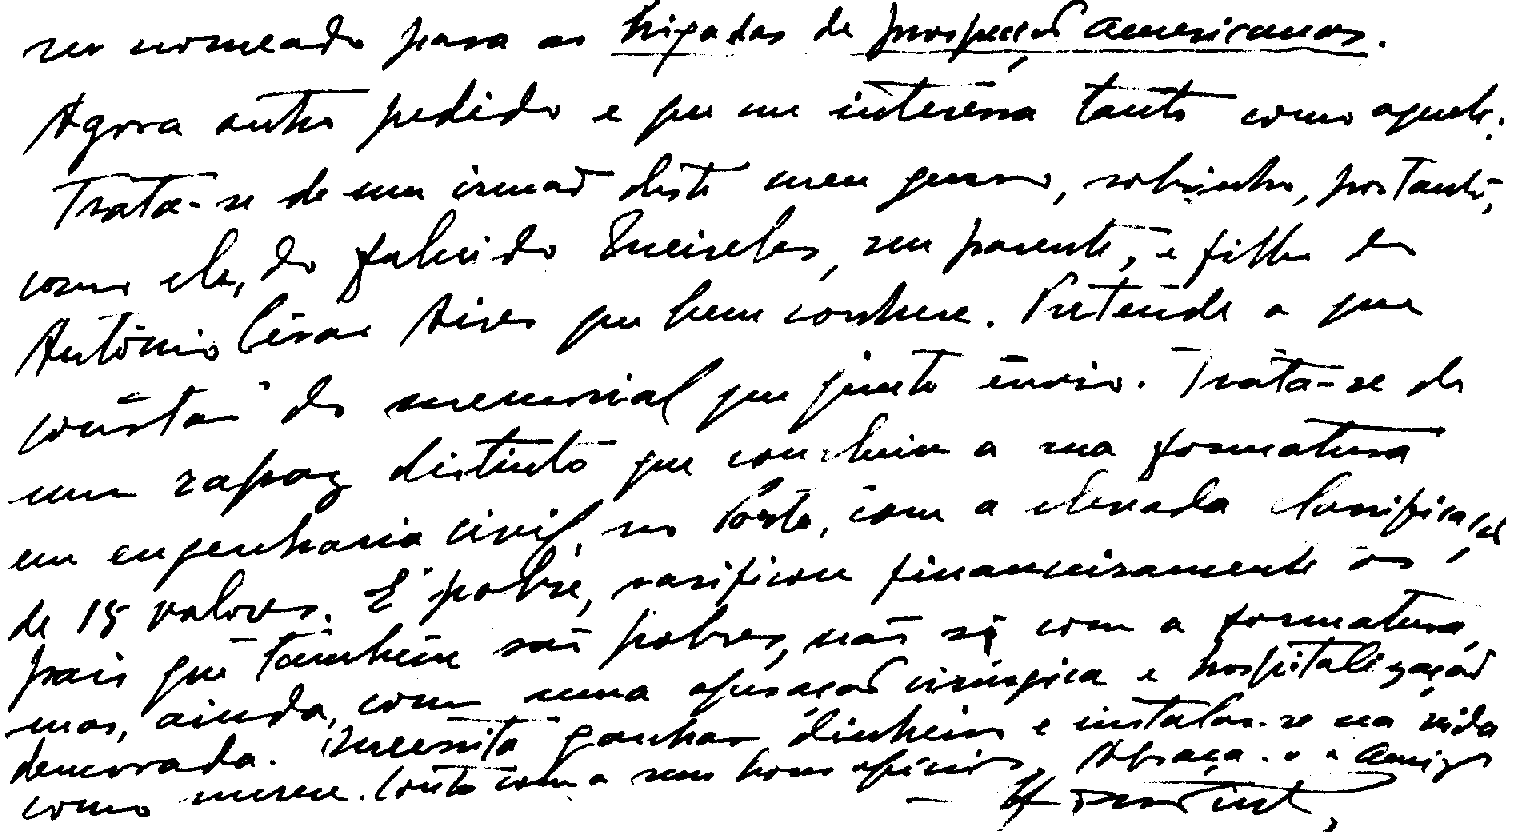 ser nomeado para as brigadas de prospecção americanas.
Agora outro pedido e que me interessa tanto como aquele.
Trata-se de um irmão deste meu genro, sobrinho, portanto,
como ele, do falecido Meireles, seu parente, e filho de
António César Aires que bem conhece. Pretende o que
consta do memorial que junto envio. Trata-se de
um rapaz distinto que concluiu a sua formatura
em engenharia civil, no Porto, com a elevada classificação
de 15 valores. É pobre, sacrificou financeiramente os
pais que também são pobres, não só com a formatura,
mas, ainda, com uma operação cirúrgica e hospitalização
demorada. Necessita ganhar dinheiro e instalar-se na vida
como merece. Conto com os seus bons ofícios. Abraça-o o amigo